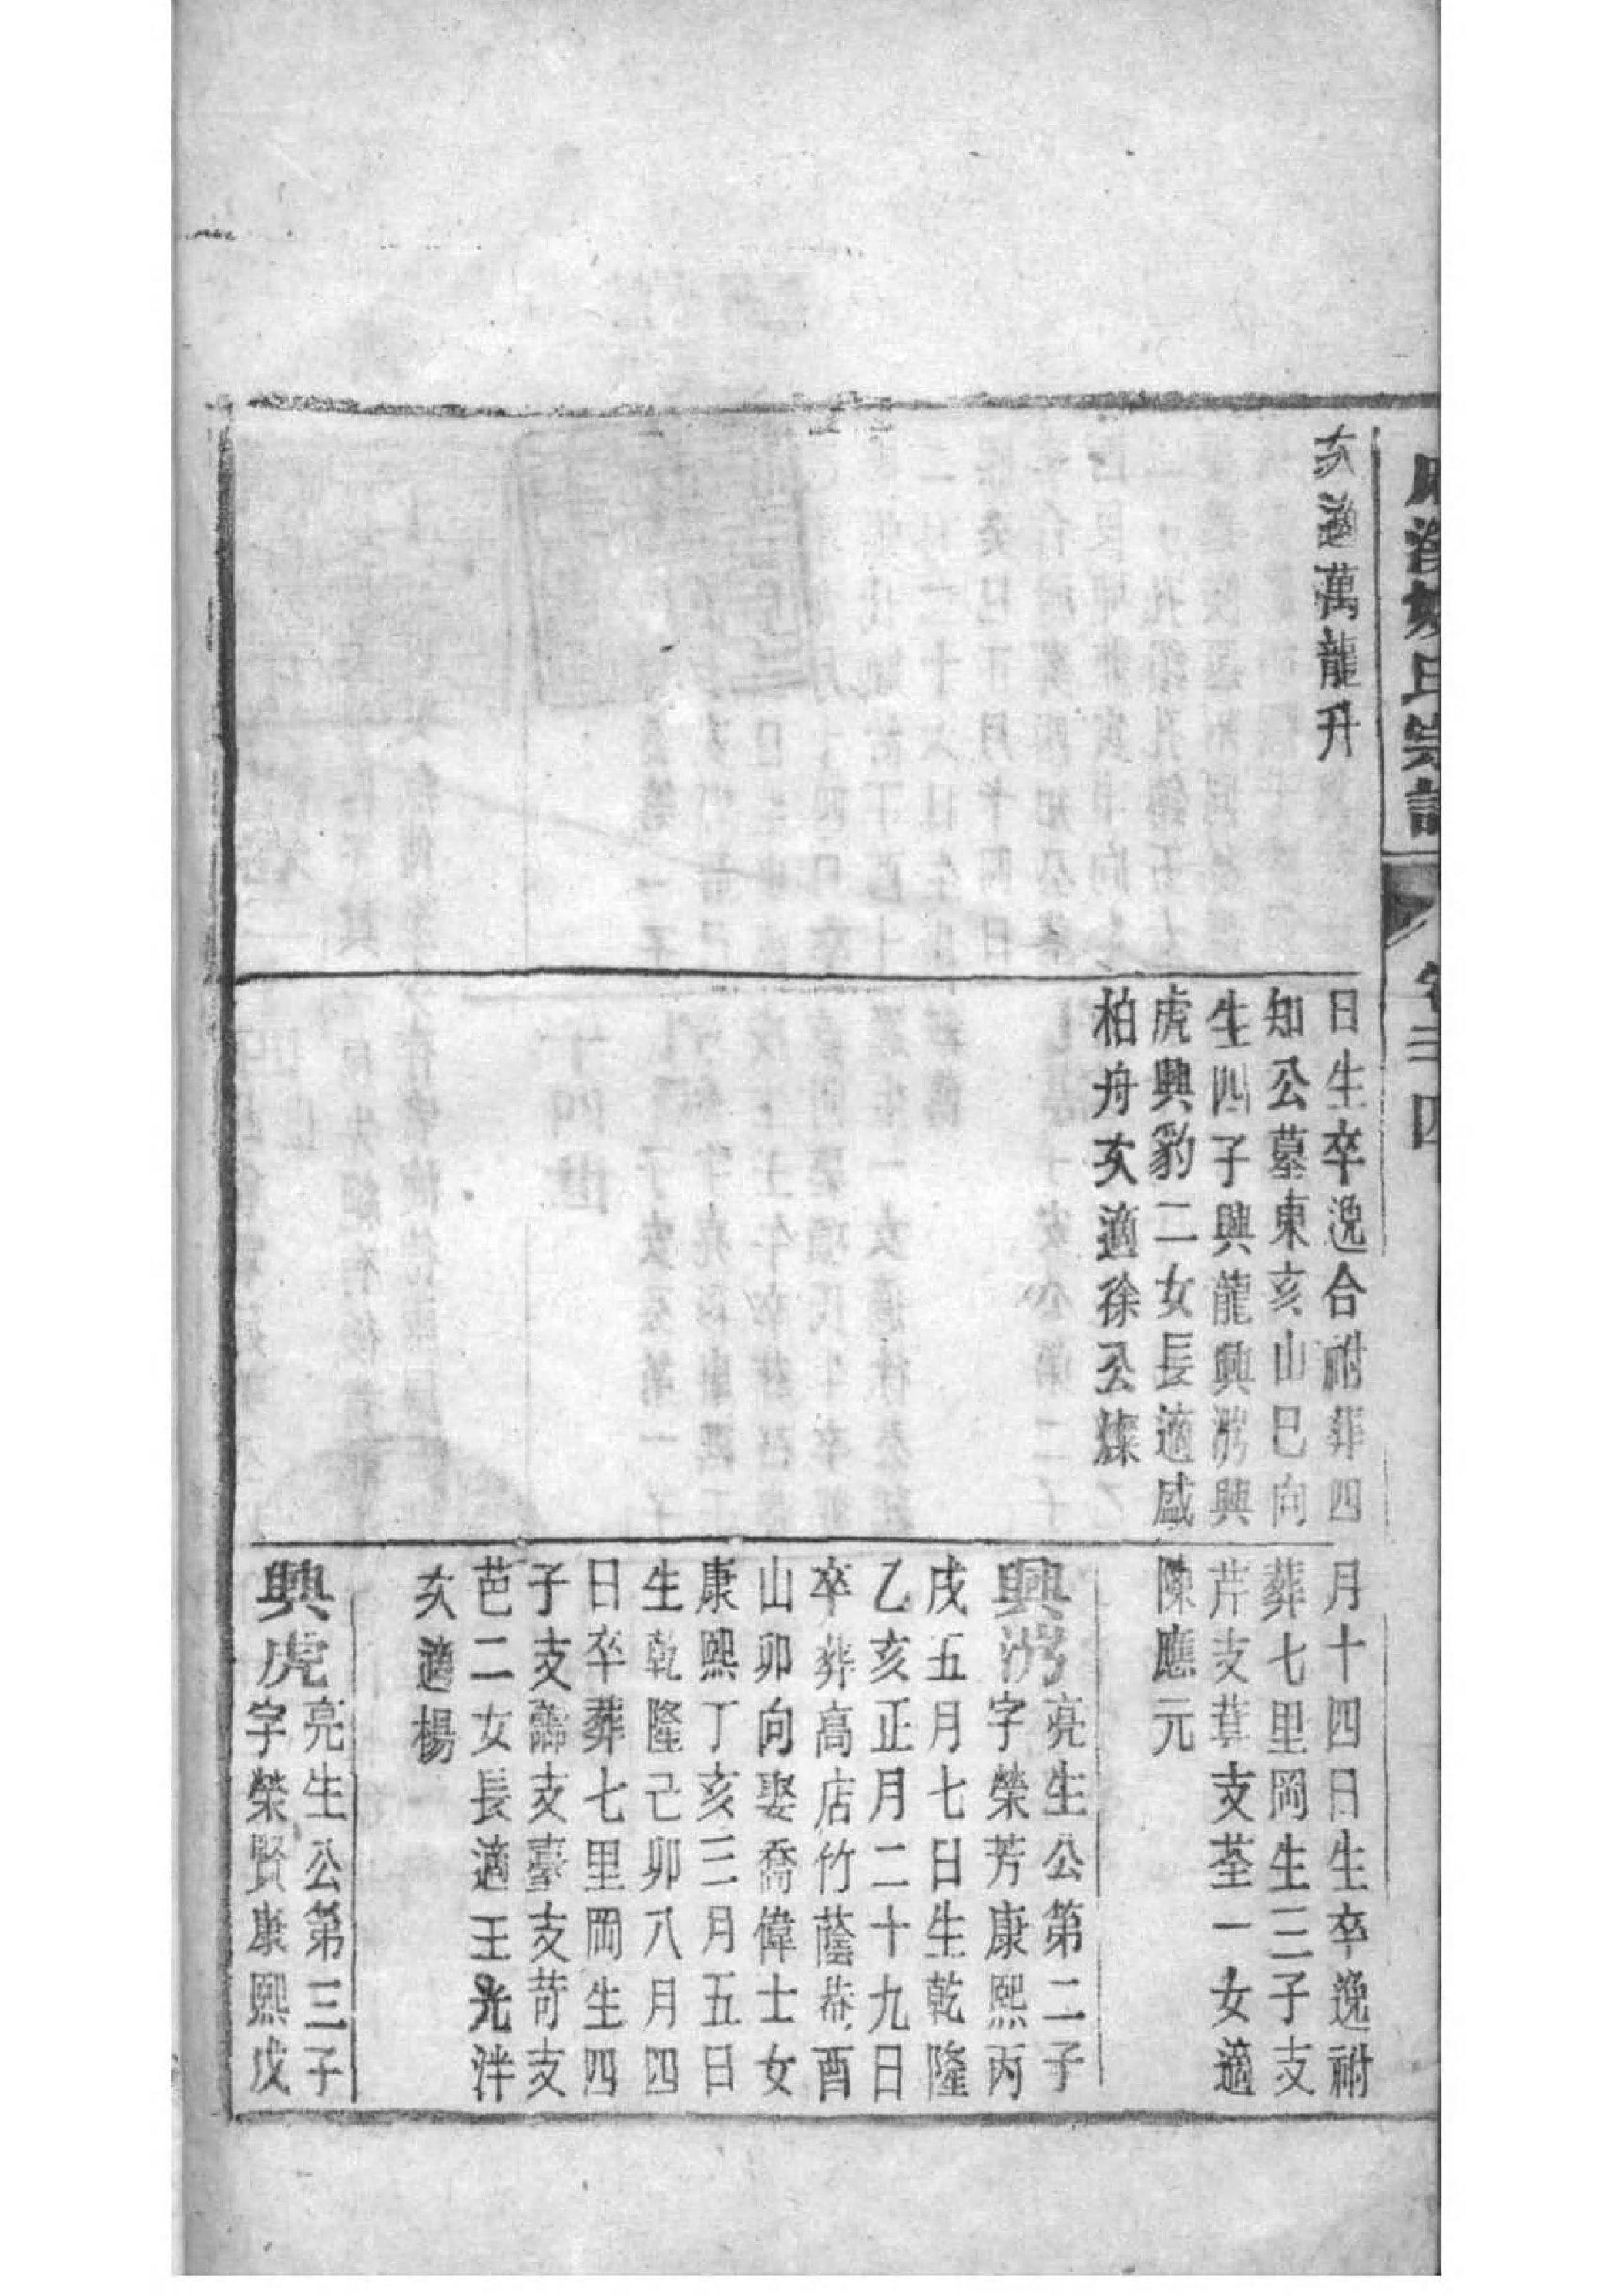 氏宗譜
卷三 四
次適萬龍升
日生卒逸合祔葬四
知公墓東亥山巳向
生四子興龍興興
虎興豹二女長適盛
柏舟次適徐公燦
月十四日生卒逸祔
葬七里岡生三子支
芹支葺支荃一女適
陳應元
興
亮生公第二子
字榮芳康熙丙
戌五月七日生乾隆
乙亥正月二十九日
卒葬高店竹蔭菴酉
山卯向娶喬偉士女
康熙丁亥三月五日
生乾隆己卯八月四
日卒葬七里岡生四
子支支臺支苛支
芭二女長適王光泮
次適楊
興虎
亮生公第三子
字榮賢康熙戊